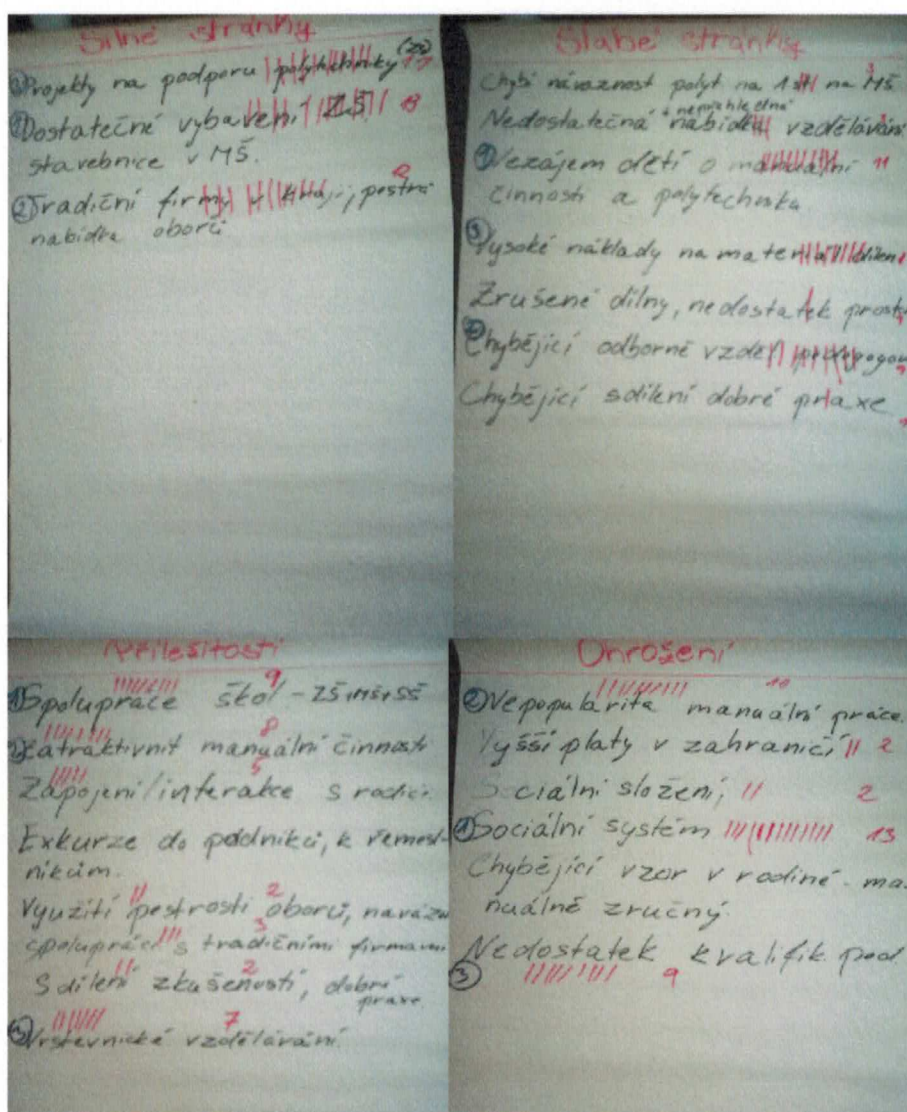 Silné stránky
① Projekty na podporu polytechniky (ZŠ)
① Dostatečné vybavení ZŠ 13
stavebnice v MŠ.
② Tradiční firmy v kraji, pestrá
nabídka oborů
Slabé stránky
Chybí návaznost polyt na 1 st na MŠ 3
+ nepřehledná
Nedostatečná nabídka vzdělávání
Nezájem dětí o manuální 11
činnosti a polytechnika
③ Vysoké náklady na materiál
Zrušené dílny, nedostatek prost
Chybějící odborné vzděl
Chybějící sdílení dobré praxe
Příležitosti
9
① Spolupráce škol - ZŠ, MŠ, SŠ
8
② Zatraktivnit manuální činnosti
5
Zapojení/interakce s rodiči
Exkurze do podniků, k řemesl-
níkům.
2
Využití pestrosti oborů, naváza
3
spolupráci s tradičními firmami
2
Sdílení zkušeností, dobré
praxe
7
Vrstevnické vzdělávání.
Ohrožení
10
② Nepopularita manuální práce.
Vyšší platy v zahraničí 2
Sociální složení, 2
① Sociální systém 13
Chybějící vzor v rodině - ma
nuálně zručný.
Nedostatek kvalifik. ped
③ 9